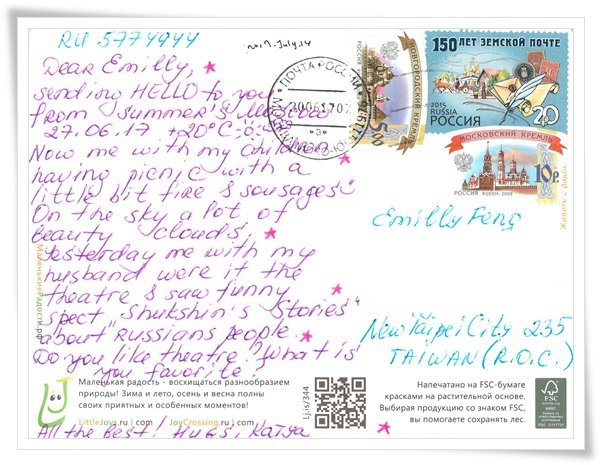 RU 5774944
2017. July. 14
Dear Emilly,
sending HELLO to you
from summer's Moscow
27.06.17 +20°C
Now me with my children
having picnic with a
little bit fire & sausages
On the sky a lot of
beauty clouds.
Yesterday me with my
husband were it the
theatre & saw funny
spect "Shukshin's Stories"
about "Russians people.
Do you like theatre? What is
you favorite?
All the best! Hugs, Katya
ПОЧТА РОССИИ
МОСКВА
30061707
НОВГОРОДСКИЙ КРЕМЛЬ
5,00
150 ЛЕТ ЗЕМСКОЙ ПОЧТЕ
2015
RUSSIA
РОССИЯ
20
МОСКОВСКИЙ КРЕМЛЬ
РОССИЯ RUSSIA · 2009
10р
Emilly Feng
New Taipei City 235
TAIWAN (R.O.C.)
МаленькиеРадости.рф
Маленькая радость - восхищаться разнообразием
природы! Зима и лето, осень и весна полны
своих приятных и особенных моментов!
LittleJoys.ru | com JoyCrossing.ru | com
Lj.is/344
Напечатано на FSC-бумаге
красками на растительной основе.
Выбирая продукцию со знаком FSC,
вы помогаете сохранять лес.
FSC